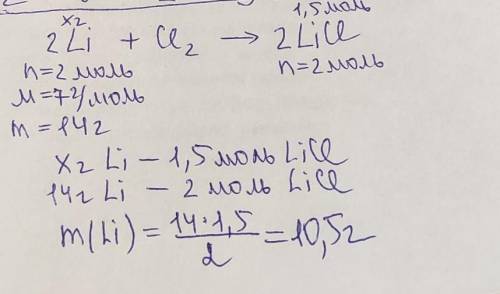 x г 1,5 моль
2Li + Cl₂ → 2LiCl
n=2 моль n=2 моль
M=7г/моль
m=14г
x г Li – 1,5 моль LiCl
14г Li – 2 моль LiCl
m(Li) = 14·1,5/2 = 10,5г